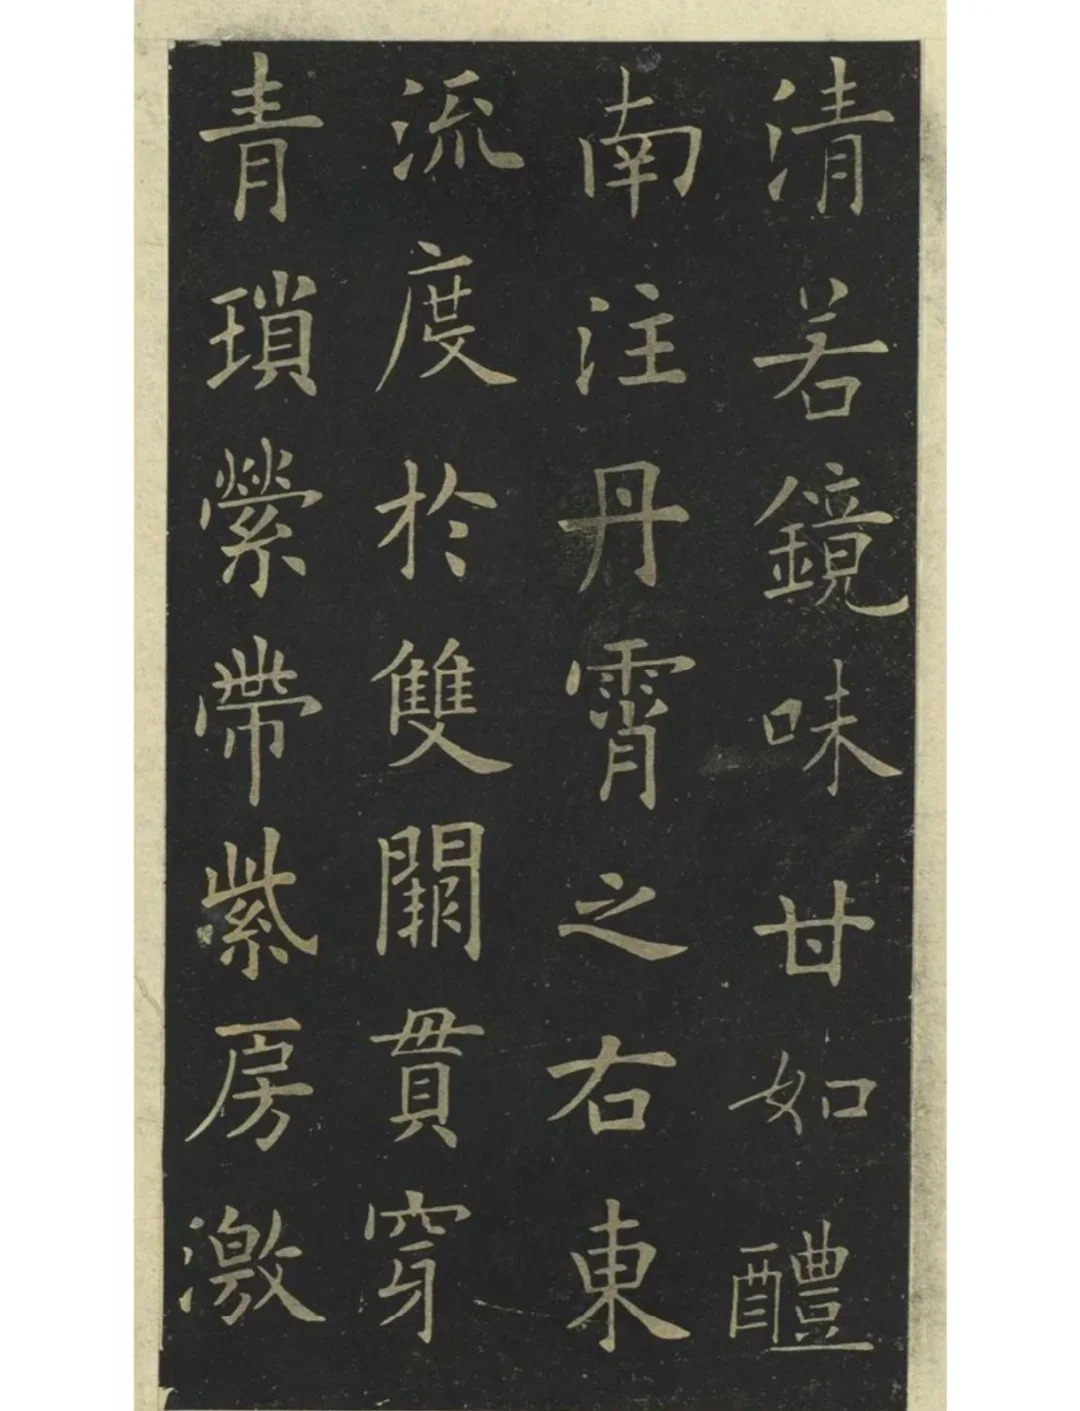 清若鏡味甘如醴
南注丹霄之右東
流度於雙闕貫穿
青瑣縈帶紫房激